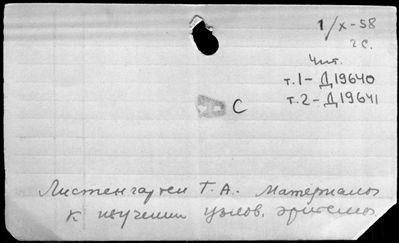 1/X-58
2 с.
Чит.
т.1- Д19640
т.2- Д19641
С
Листенгартен Т. А. Материалы
к изучению узлов. эритемы